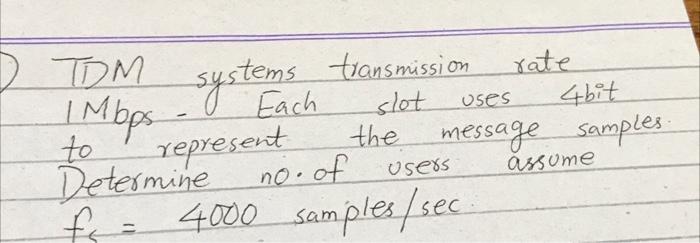 ) TDM systems transmission rate
1Mbps - Each slot uses 4bit
to represent the message samples.
Determine no. of users assume
fs = 4000 samples/sec.